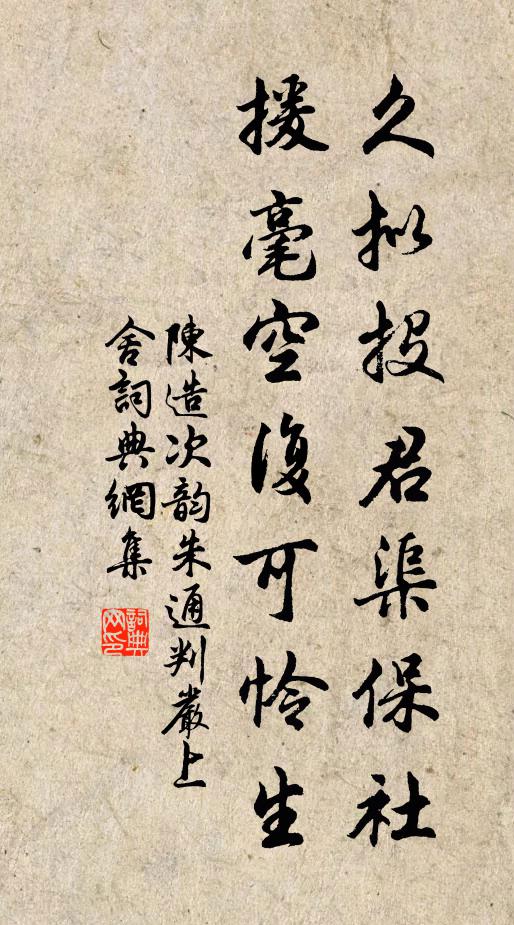 久拟投君渠保社
援毫空復可怜生
陳造次韵朱通判嚴上
舍詞典網集
詞典网印